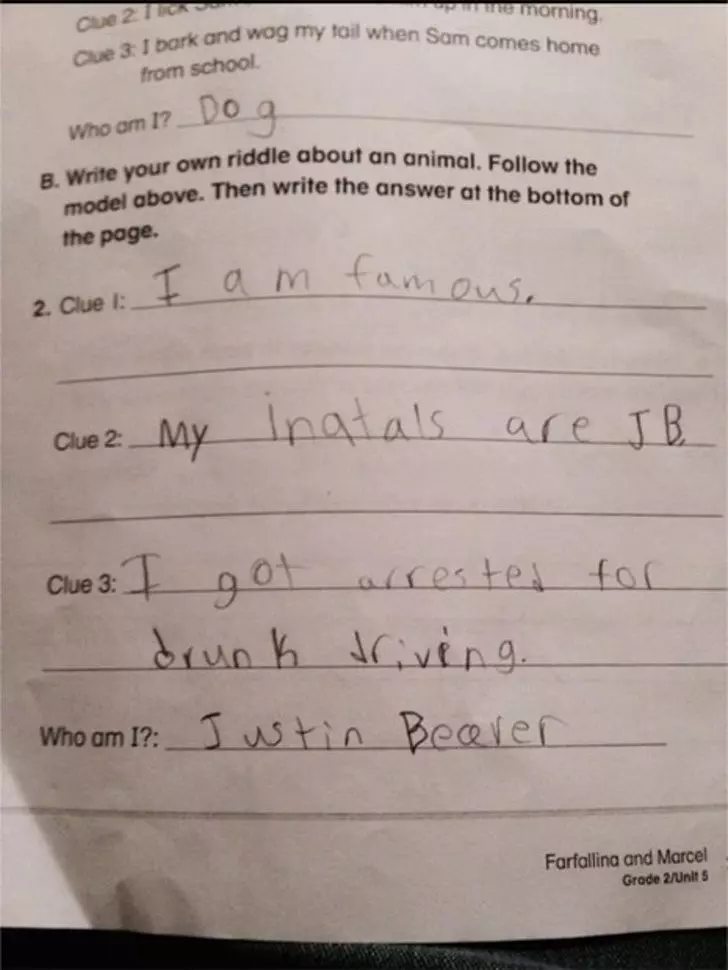 Clue 2: I lick up in the morning.
Clue 3: I bark and wag my tail when Sam comes home
from school.
Who am I? Dog
B. Write your own riddle about an animal. Follow the
model above. Then write the answer at the bottom of
the page.
2. Clue 1: I am famous.
Clue 2: My inatals are JB.
Clue 3: I got arrested for
drunk driving.
Who am I?: Justin Beaver
Farfallina and Marcel
Grade 2/Unit 5